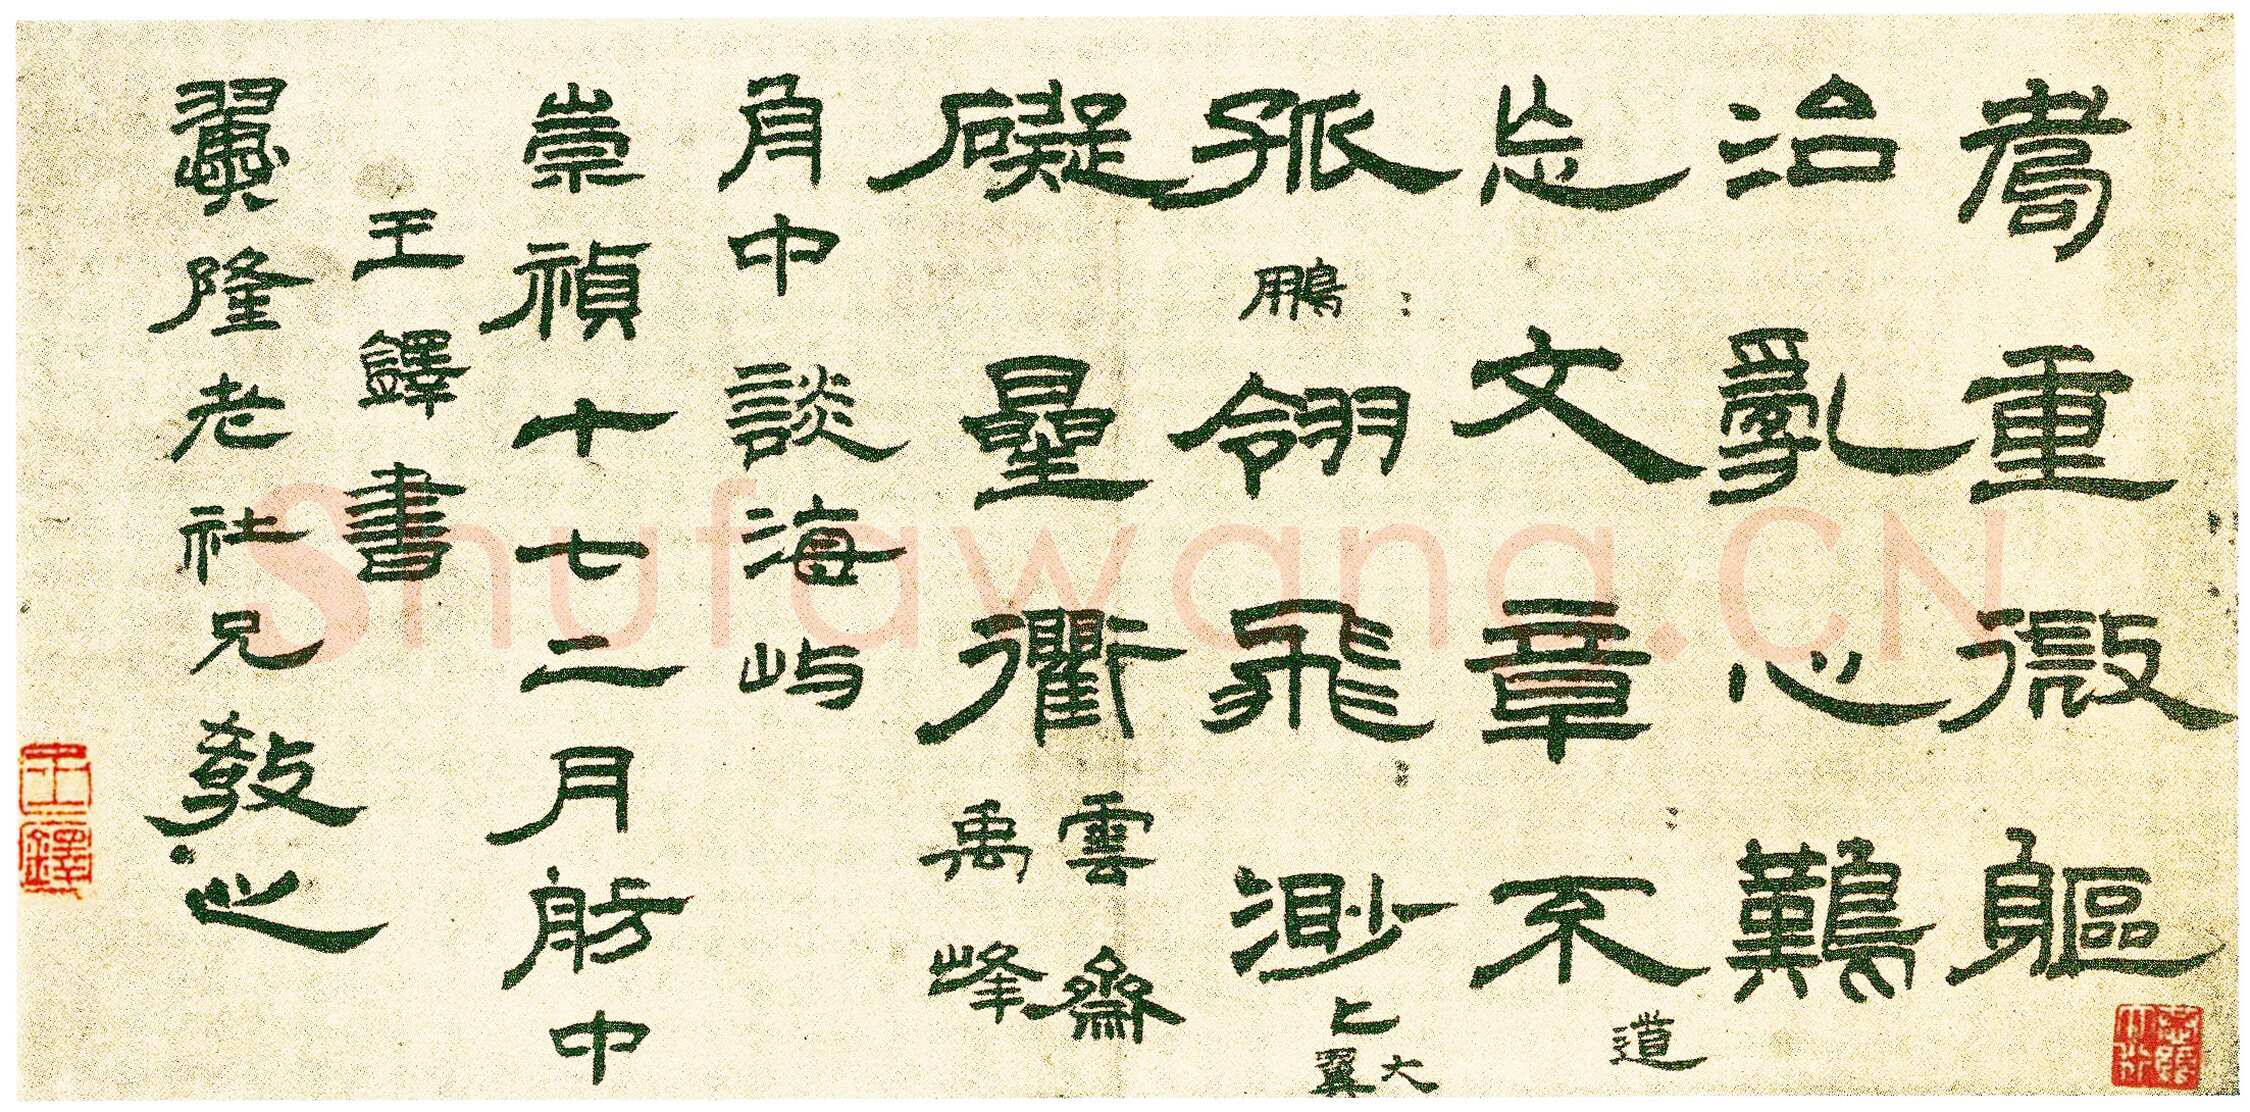 重微軀
治亂心難
忘文章不道
孤鵬翎飛渺上大翼
礙曐衢雲齋禹峰
舟中談海屿
崇禎十七二月舫中
王鐸書
隆老社兄教之
王鐸
Shufawang.CN